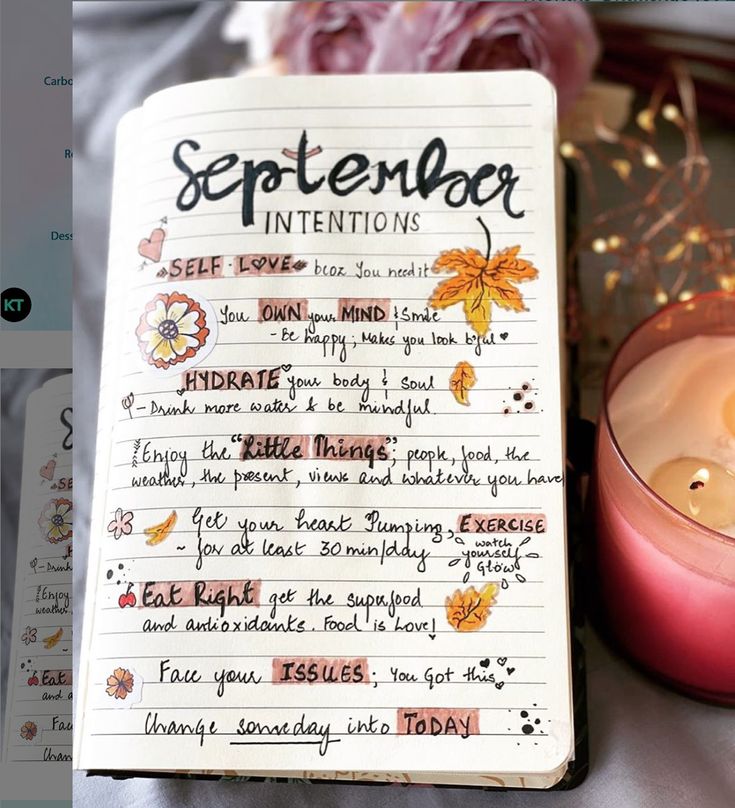 September
INTENTIONS
SELF-LOVE bcoz You need it
You OWN your MIND & Smile
- Be happy; Makes you look b'ful
HYDRATE your body & soul
- Drink more water & be mindful.
Enjoy the "Little Things"; people, food, the
weather, the present, views and whatever you have
Get your heart Pumping, EXERCISE
~ for at least 30 min/day
watch
yourself
Glow
Eat Right get the superfood
and antioxidants. Food is Love!
Face your ISSUES; You Got this
Change someday into TODAY
Carbo
Dess
KT